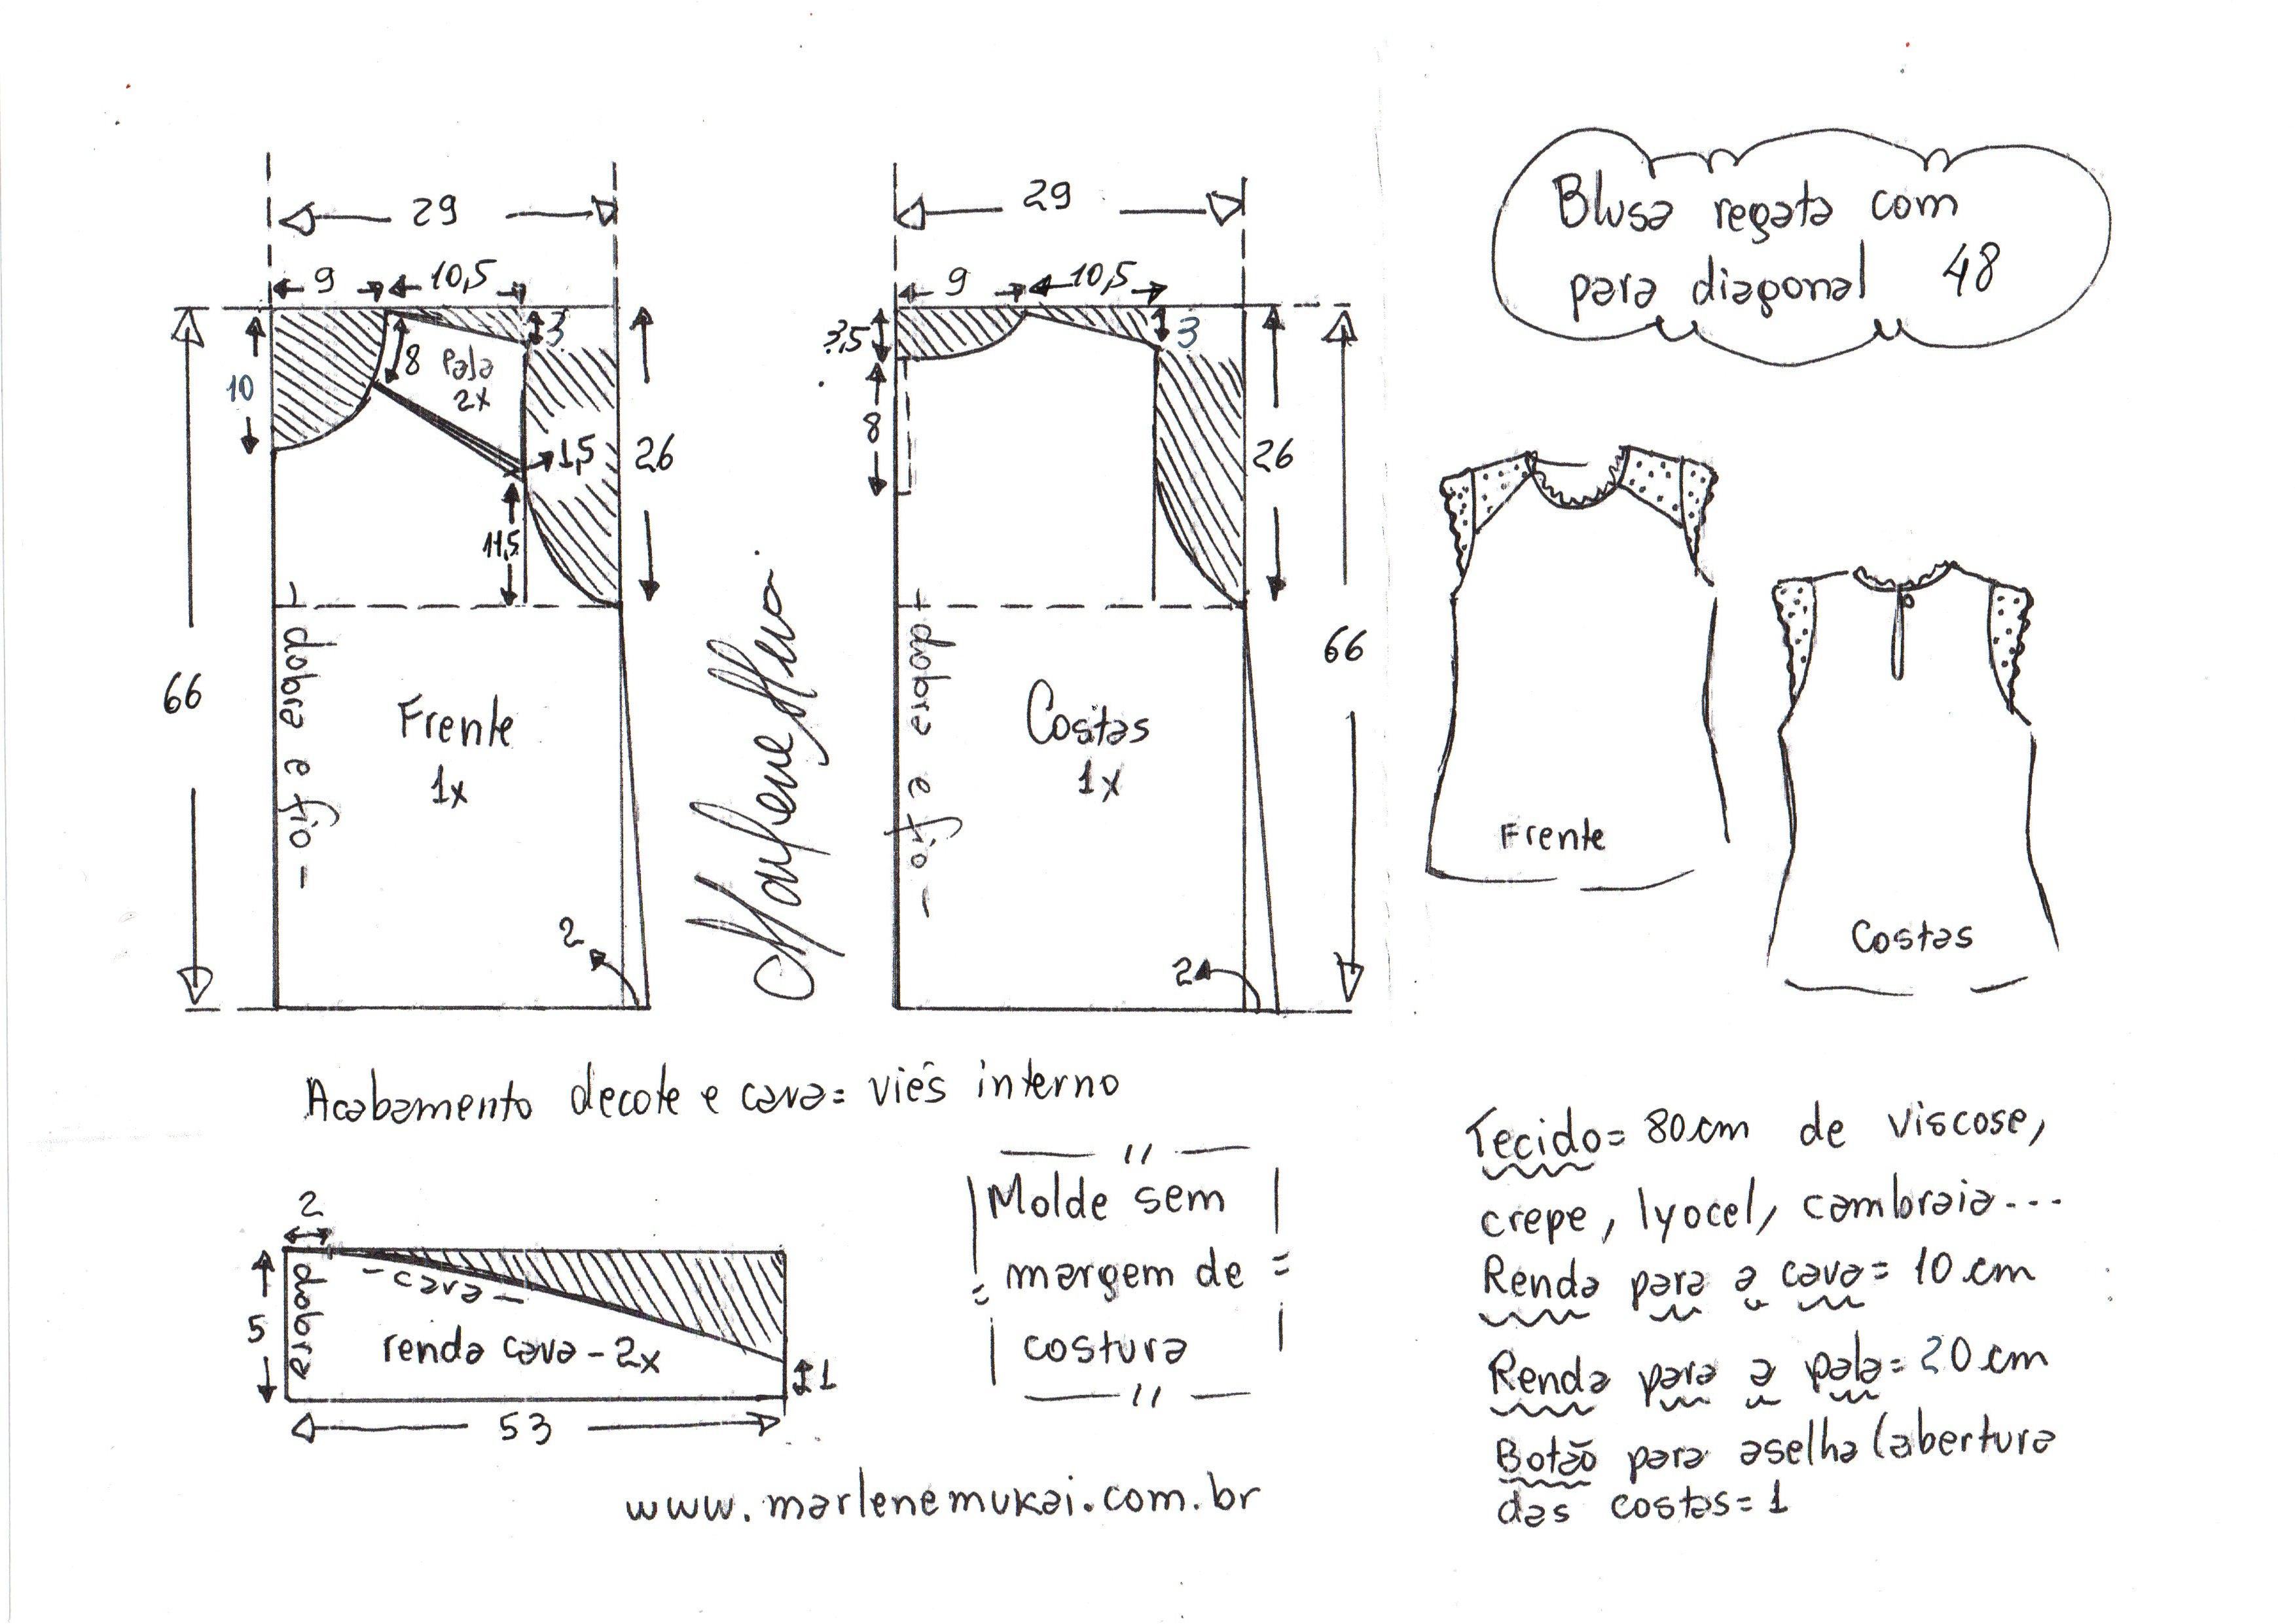 Blusa regata com
para diagonal 48
29
9 10,5
3
10
8 Pala
2x
1,5
26
11,5
66
dobra e fio
Frente
1x
2
Marlene Mukai
29
9 10,5
3,5
3
8
26
66
dobra e fio
Costas
1x
2
Frente
Costas
Acabamento decote e cava= viés interno
2
5
dobra
- cava -
renda cava - 2x
1
53
Molde sem
margem de
costura
www.marlenemukai.com.br
Tecido= 80cm de viscose,
crepe, lyocel, cambraia...
Renda para a cava= 10 cm
Renda para a pala= 20 cm
Botão para aselha (abertura
das costas= 1